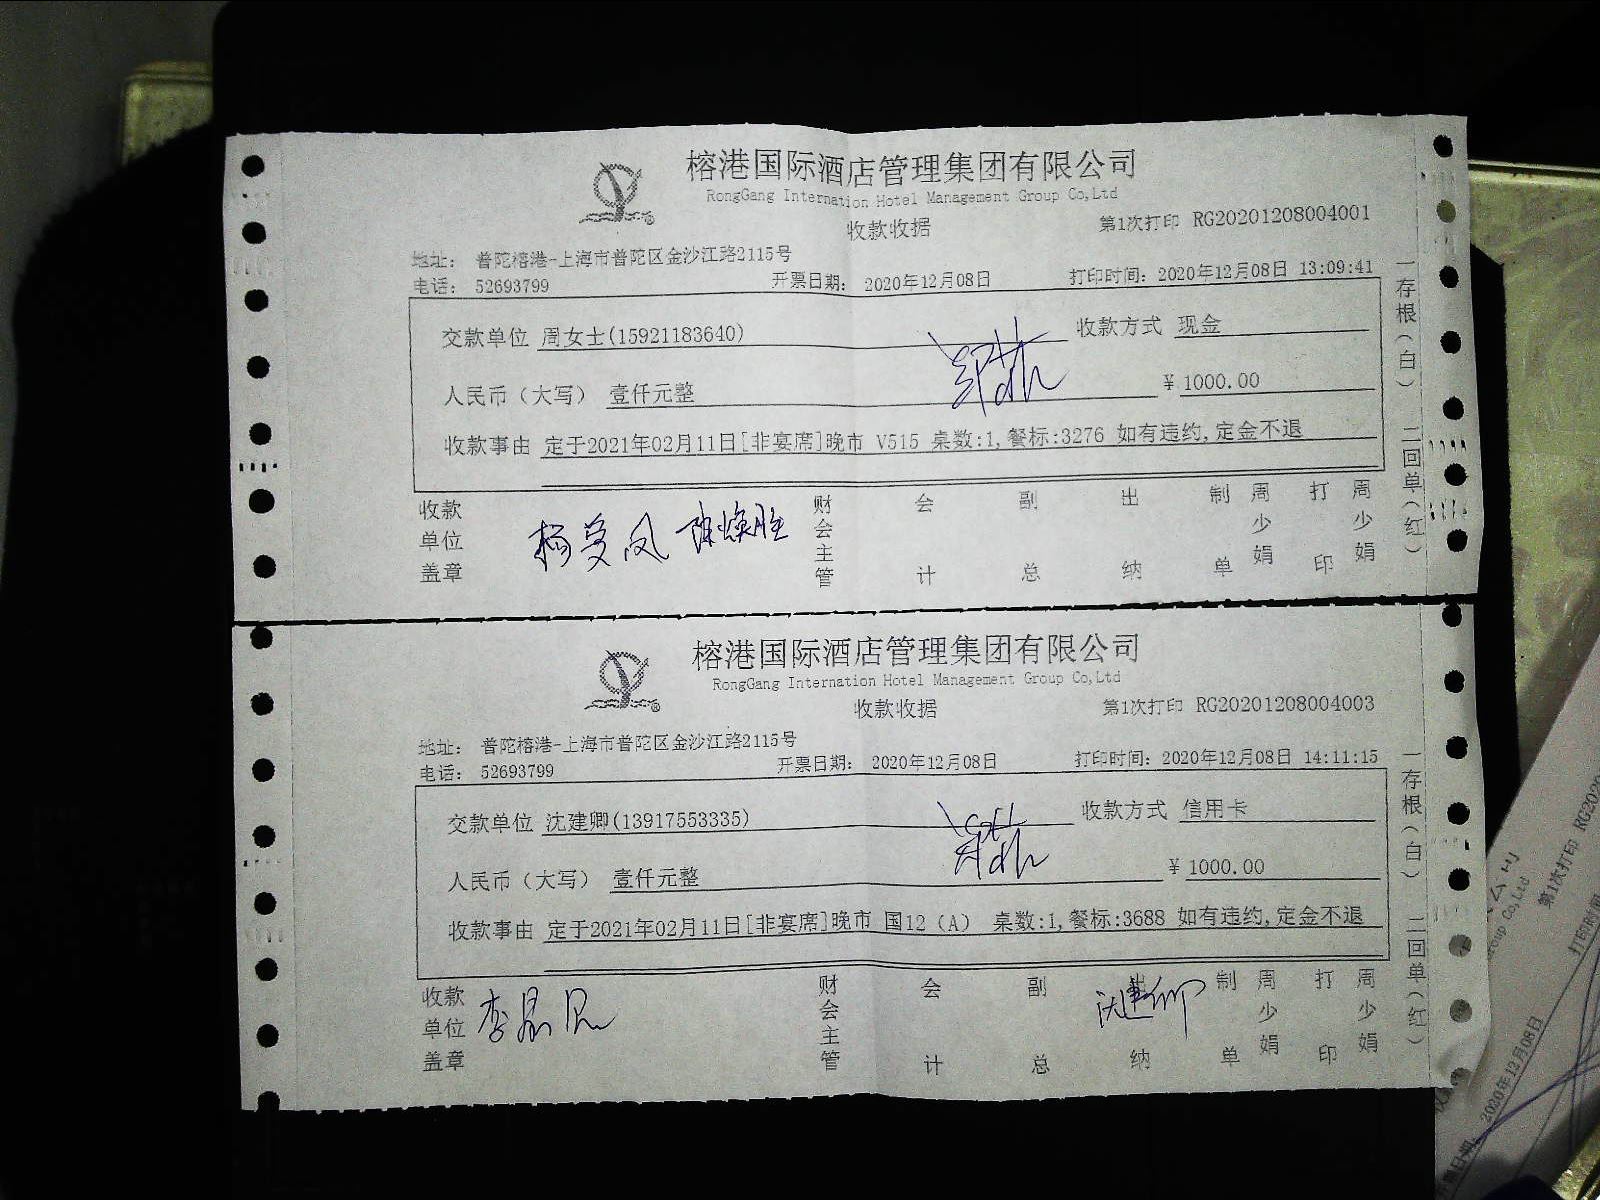 榕港国际酒店管理集团有限公司
RongGang Internation Hotel Management Group Co,Ltd
收款收据
第1次打印 RG20201208004001
地址: 普陀榕港-上海市普陀区金沙江路2115号
电话: 52693799
开票日期: 2020年12月08日
打印时间: 2020年12月08日 13:09:41
交款单位 周女士(15921183640)
收款方式 现金
人民币(大写) 壹仟元整
¥ 1000.00
收款事由 定于2021年02月11日[非宴席]晚市 V515 桌数:1,餐标:3276 如有违约,定金不退
收款单位盖章
财会主管
会计
副总
出纳
制单 周少娟
打印 周少娟
一存根(白) 二回单(红)
榕港国际酒店管理集团有限公司
RongGang Internation Hotel Management Group Co,Ltd
收款收据
第1次打印 RG20201208004003
地址: 普陀榕港-上海市普陀区金沙江路2115号
电话: 52693799
开票日期: 2020年12月08日
打印时间: 2020年12月08日 14:11:15
交款单位 沈建卿(13917553335)
收款方式 信用卡
人民币(大写) 壹仟元整
¥ 1000.00
收款事由 定于2021年02月11日[非宴席]晚市 国12 (A) 桌数:1,餐标:3688 如有违约,定金不退
收款单位盖章
财会主管
会计
副总
出纳
沈建卿
制单 周少娟
打印 周少娟
一存根(白) 二回单(红)
第1次打印
2020年12月08日